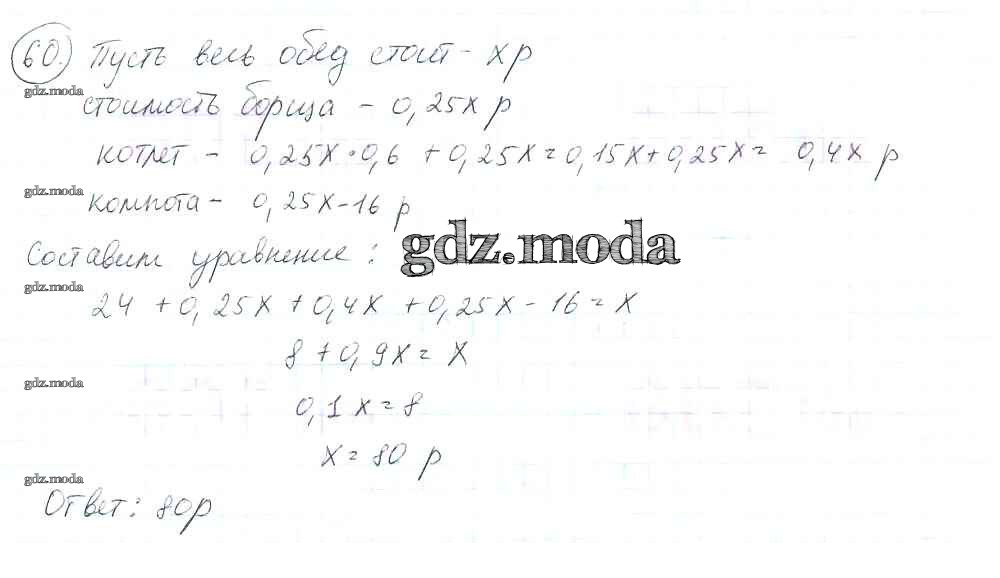 60. Пусть весь обед стоит - x р
gdz.moda
стоимость борща - 0,25x р
котлет - 0,25x·0,6 + 0,25x = 0,15x + 0,25x = 0,4x р
gdz.moda
компота - 0,25x-16 р
Составим уравнение:
gdz.moda
gdz.moda
24 + 0,25x + 0,4x + 0,25x - 16 = x
8 + 0,9x = x
gdz.moda
0,1x = 8
x = 80 р
gdz.moda
Ответ: 80р